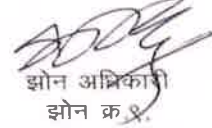 झोन अधिकारी
झोन क्र.